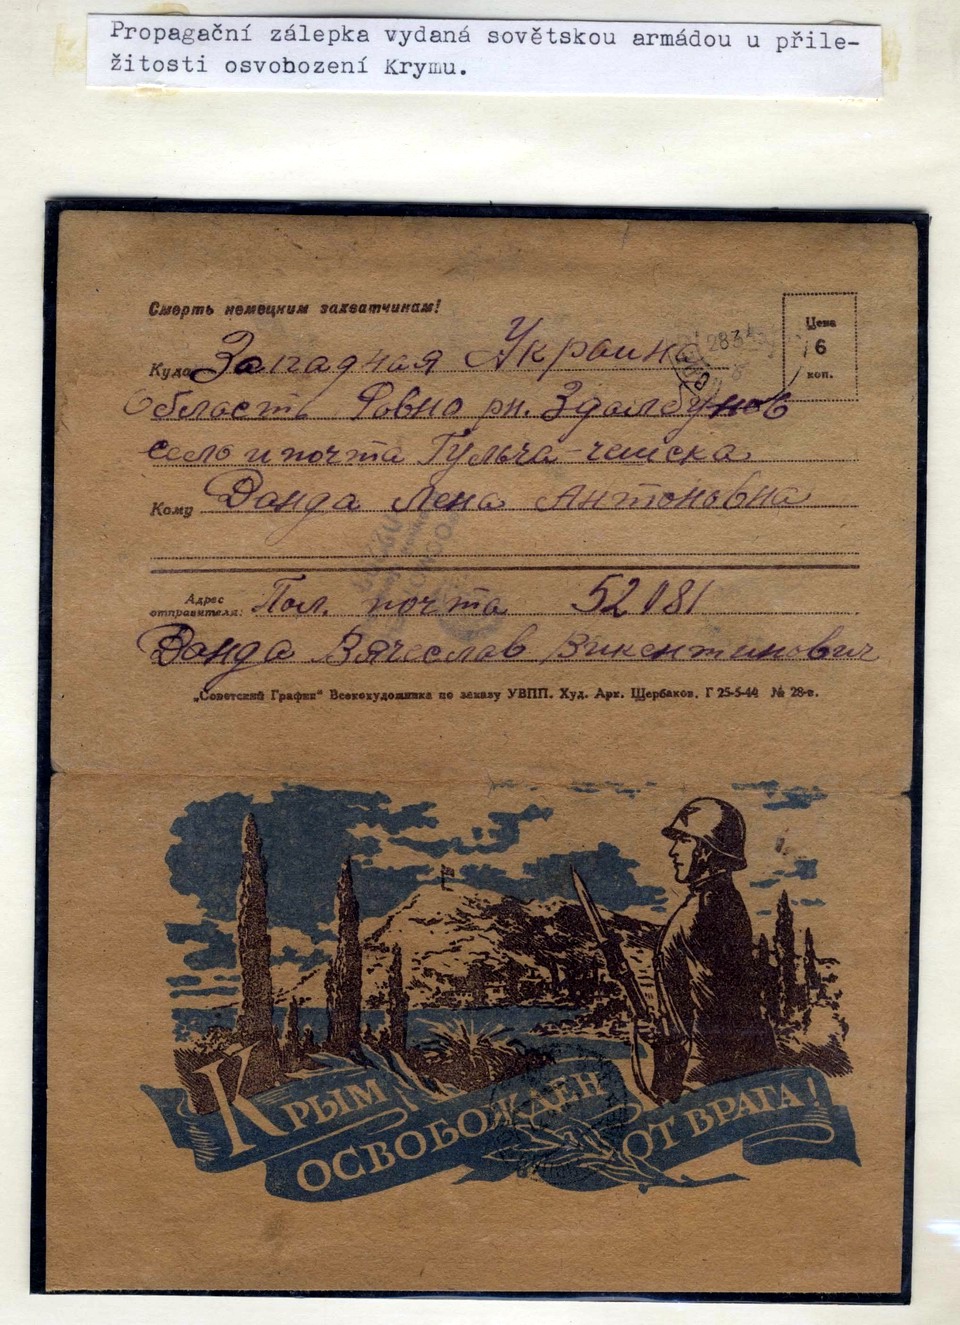 Propagační zálepka vydaná sovětskou armádou u příle-
žitosti osvobození Krymu.
Смерть немецким захватчикам!
Цена
6
коп.
Куда Западная Украина
Область Ровно рн. Здолбунов
село и почта Гульча-чешска
Кому Ванда Лена Антоновна
Адрес
отправителя: Пол. почта 52181
Ванда Вячеслав Викентинович
„Советский График" Всекохудожника по заказу УВПП. Худ. Арк. Щербаков. Г 25-5-44 № 28-в.
КРЫМ
ОСВОБОЖДЕН
ОТ ВРАГА!